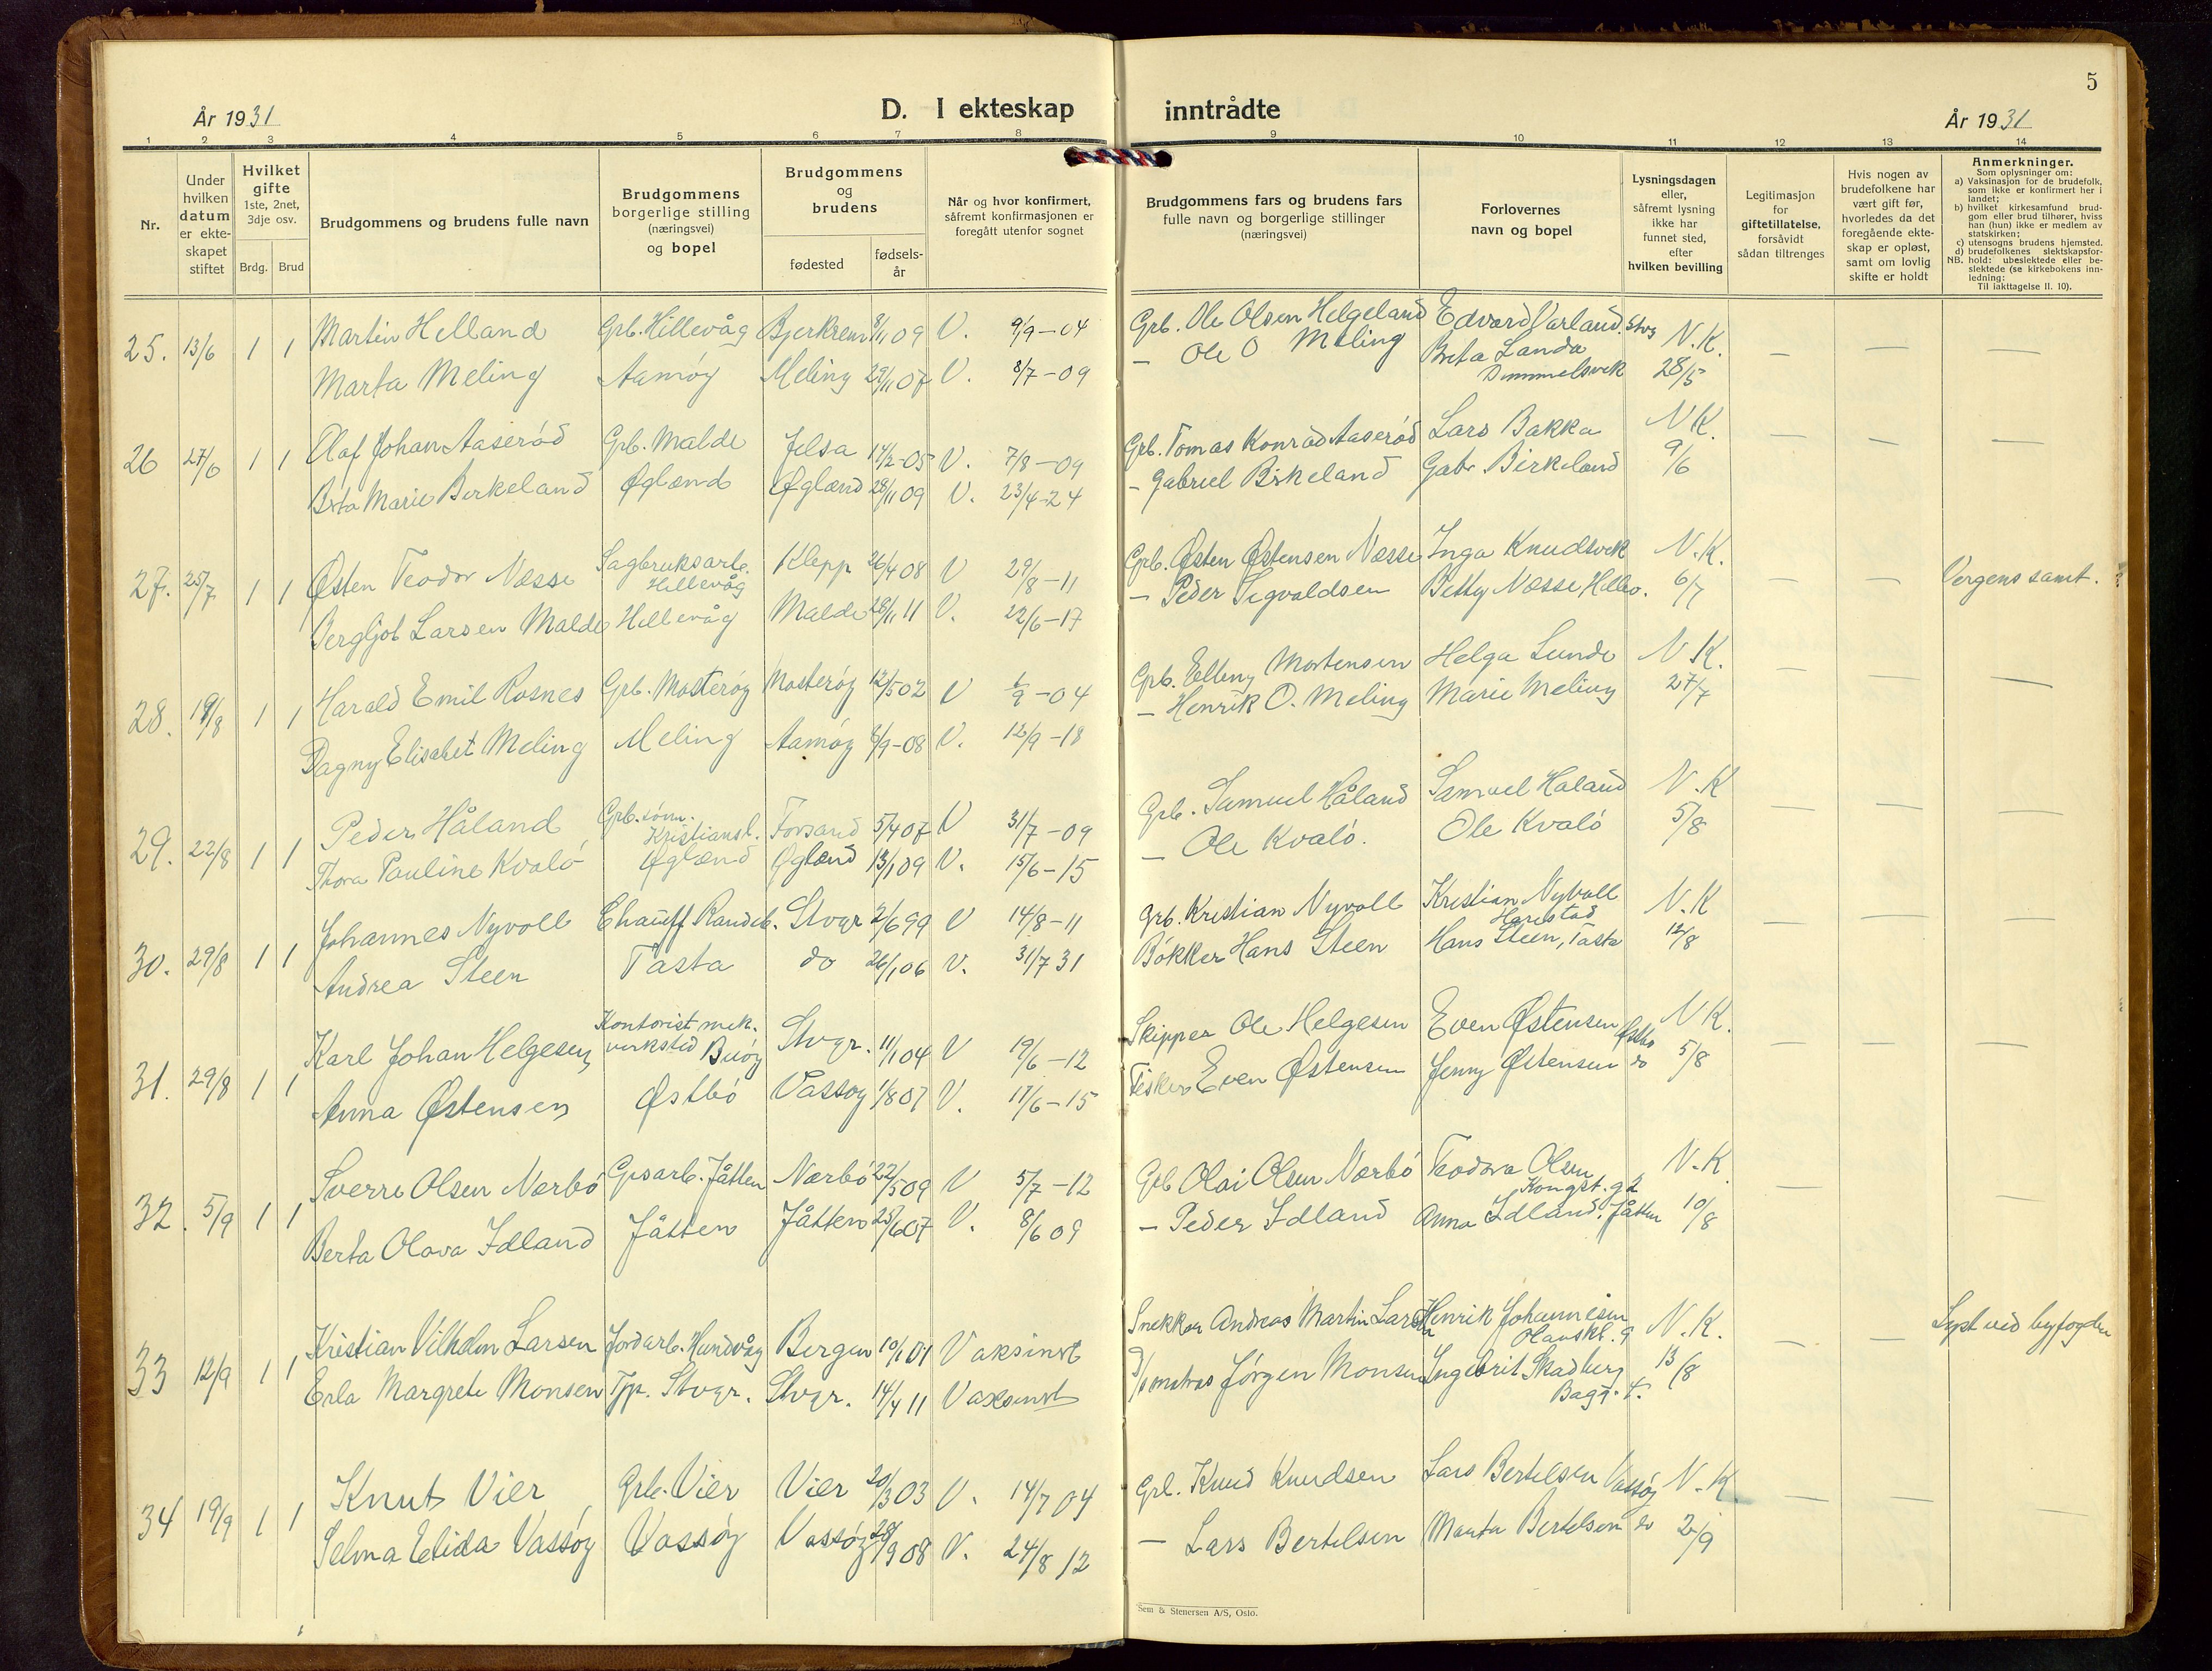 5
År 1931
D. I ekteskap inntrådte
År 1931
1 2 3 4 5 6 7 8 9 10 11 12 13 14
Nr.
Under hvilken datum er ekteskapet stiftet
Hvilket gifte 1ste, 2net, 3dje osv.
Brdg. Brud
Brudgommens og brudens fulle navn
Brudgommens borgerlige stilling (næringsvei) og bopel
Brudgommens og brudens
fødested
fødsels-år
Når og hvor konfirmert, såfremt konfirmasjonen er foregått utenfor sognet
Brudgommens fars og brudens fars fulle navn og borgerlige stillinger (næringsvei)
Forlovernes navn og bopel
Lysningsdagen eller, såfremt lysning ikke har funnet sted, efter hvilken bevilling
Legitimasjon for giftetillatelse, forsåvidt sådan tiltrenges
Hvis nogen av brudefolkene har vært gift før, hvorledes da det foregående ekteskap er opløst, samt om lovlig skifte er holdt
Anmerkninger.
Som oplysninger om:
a) Vaksinasjon for de brudefolk, som ikke er konfirmert her i landet;
b) hvilket kirkesamfund brudgom eller brud tilhører, hviss han (hun) ikke er medlem av statskirken;
c) utensogns brudens hjemsted.
d) brudefolkenes slektskapsforhold: ubeslektede eller beslektede (se kirkebokens innledning:
NB.
Til iakttagelse II. 10).
25. 13/6 1 1 Martin Helland Grb. Hillevåg Bjerkrem 8/11 09 V. 9/9-04 Grb. Ole Olsen Helgeland Edvard Varland. Stvg N.K. — — —
Marta Meling Aamøy Meling 29/11 07 V. 8/7-09 — Ole O Meling Berta Landa 28/5
26 27/6 1 1 Olaf Johan Aaserød Grb. Malde Jelsa 14/2-05 V. 7/8-09 Grb. Tomas Konrad Aaserød Lars Bakka N.K. — — —
Berta Marie Birkeland Øglænd Øglænd 28/11 09 V. 23/4-24 - Gabriel Birkeland Gabr. Birkeland 9/6
27. 25/7 1 1 Østen Teodor Næsse Sagbruksarb. Hillevåg Klepp 26/4 08 V 29/8-11 Grb. Østen Østensen Næsse Inga Knudsvik N.K. — — Vergens samt.
Bergljot Larsen Malde Hillevåg Malde 28/11 11 V. 22/6-17 - Peder Sigvaldsen Betty Næsse, Hillev. 6/7
28. 19/8 1 1 Harald Emil Rosnes Grb. Mosterøy Mosterøy 12/5 02 V 6/9-04 Grb. Elling Mortensen Helga Lunde N.K. — —
Dagny Elisabet Meling Meling Aamøy 8/9-08 V. 12/9-18 - Henrik O. Meling Marie Meling 27/7
29. 22/8 1 1 Peder Håland Grb. sønn. Kristiansl. Forsand 5/4 07 V 31/7-09 Grb. Samuel Håland Samuel Haland N.K — — —
Thora Pauline Kvalø Øglænd Øglænd 13/1 09 V. 15/6-15 — Ole Kvalø. Ole Kvalø 5/8
30. 29/8 1 1 Johannes Nyvoll Chauff. Randeb. Stvgr 2/6 99 V 14/8-11 Grb. Kristian Nyvoll Kristian Nyvoll Harestad N.K — — —
Andrea Steen Tasta do 26/1 06 V. 31/7 31 Bøkker Hans Steen Hans Steen, Tasta 12/8
31. 29/8 1 1 Karl Johan Helgesen Kontorist mek. verksted Buøy Stvgr. 11/1 04 V 19/6-12 Skipper Ole Helgesen Even Østensen Østbø N.K. — — —
Anna Østensen Østbø Vassøy 1/8 07 V. 17/6-15 Fisker Even Østensen Jenny Østensen do 5/8
32. 5/9 1 1 Sverre Olsen Nærbø Grdsarb. Jåtten Nærbø 22/5 09 V 5/7-12 Grb Olai Olsen Nærbø Teodora Olsen Kongst. g 2 N.K. — —
Berta Olava Idland Jåtten Jåtten 25/6 07 V. 8/6 09 — Peder Idland Anna Idland. Jåtten 10/8
33 12/9 1 1 Kristian Vilhelm Larsen Jordarb. Hundvåg Bergen 10/1 01 Vaksinert Snekker Andreas Martin Larsen Henrik Johannesen Olavskl. 9 N.K. — — Lyst ved byfogden
Erla Margrete Monsen Tjp. Stvgr. Stvgr. 14/4 11 Vaksinert Jørgen Monsen Ingebrit Skadberg Bagg. t. 13/8
34 19/9 1 1 Knut Vier Grb. Vier Vier 20/3 03 V. 14/7 04 Grb. Knud Knudsen Lars Bertelsen Vassøy N.K. — — —
Selma Elida Vassøy Vassøy Vassøy 28/9 08 V. 24/8 12 — Lars Bertelsen Marta Bertelsen do 2/9
Sem & Stenersen A/S, Oslo.